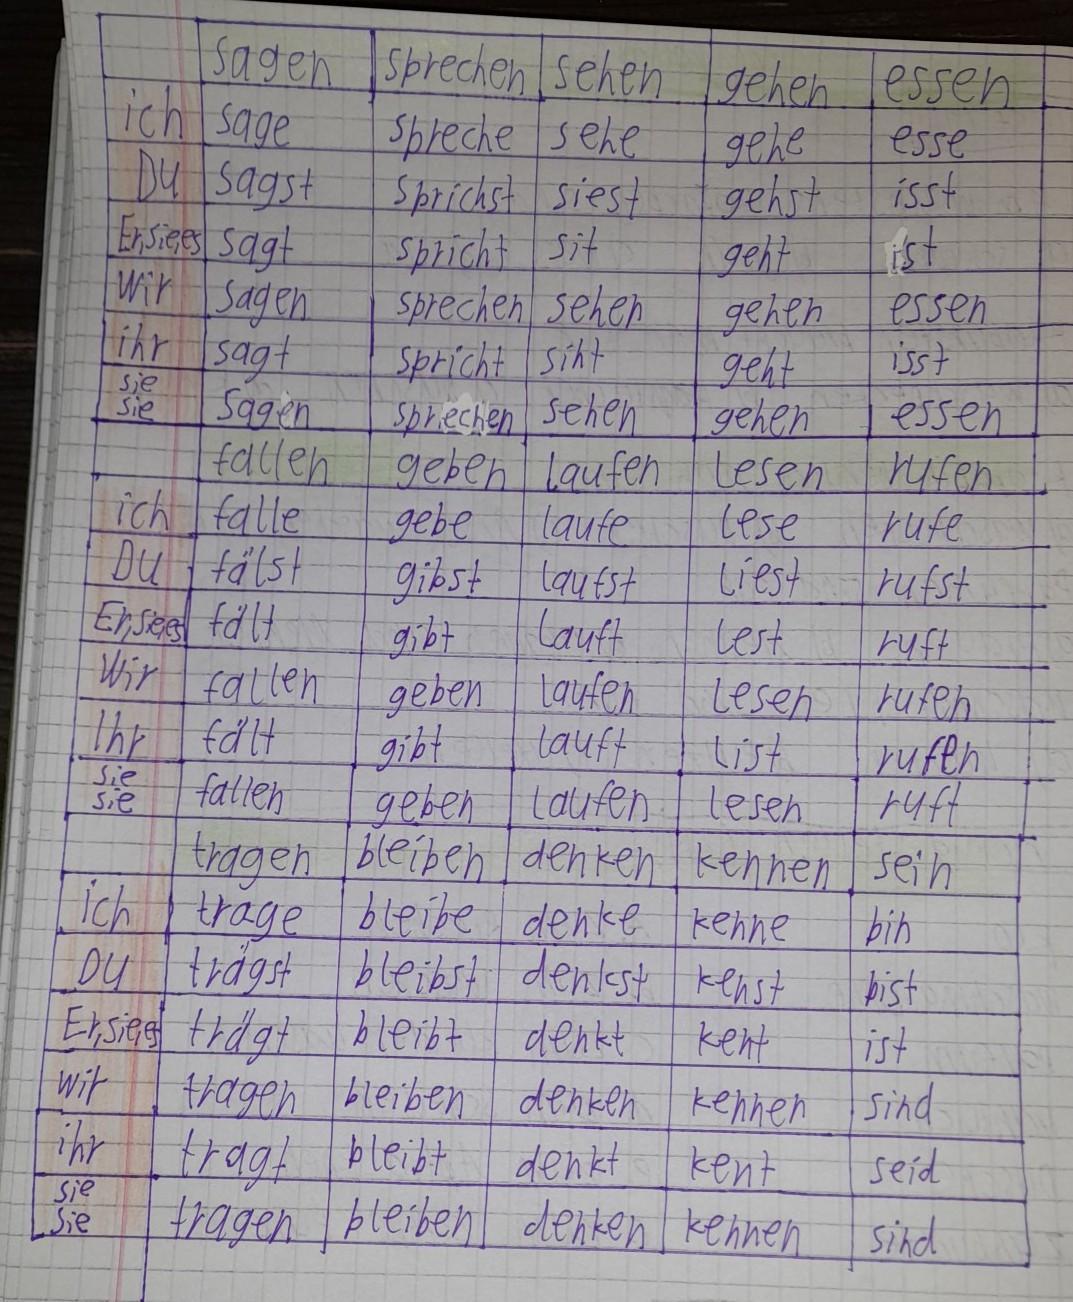 sagen sprechen sehen gehen essen
ich sage spreche sehe gehe esse
Du sagst sprichst siest gehst isst
Er,sie,es sagt spricht sit geht ist
Wir sagen sprechen sehen gehen essen
ihr sagt spricht siht geht isst
sie
sie sagen sprechen sehen gehen essen
fallen geben laufen lesen rufen
ich falle gebe laufe lese rufe
Du fälst gibst laufst liest rufst
Er,sie,es fält gibt lauft lest ruft
Wir fallen geben laufen lesen rufen
Ihr fält gibt lauft list rufen
sie
sie fallen geben laufen lesen ruft
tragen bleiben denken kennen sein
ich trage bleibe denke kenne bin
Du trägst bleibst denkst kenst bist
Er,sie,es trägt bleibt denkt kent ist
wir tragen bleiben denken kennen sind
ihr tragt bleibt denkt kent seid
sie
sie tragen bleiben denken kennen sind